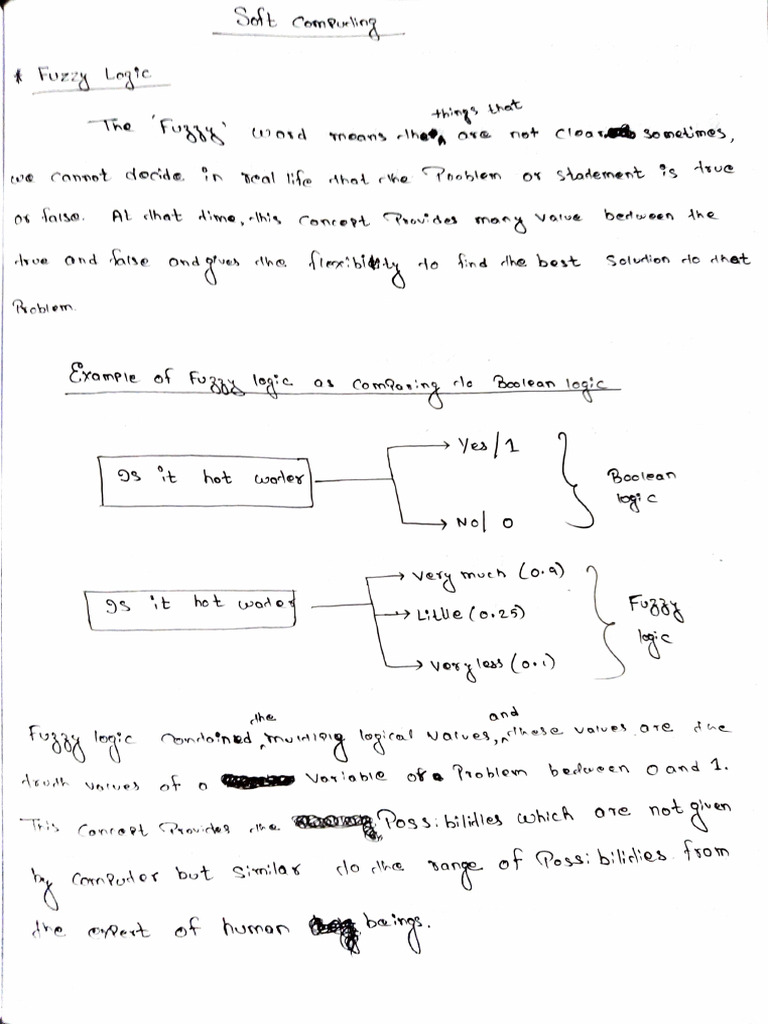 Soft Computing
* Fuzzy Logic
The 'Fuzzy' word means the things that are not clear sometimes,
we cannot decide in real life that the Problem or statement is true
or false. At that time, this concept Provides many value between the
true and false and gives the flexibility to find the best solution to that
Problem.
Example of Fuzzy logic as comparing to Boolean logic
Is it hot water
Yes/1
No/0
Boolean
logic
Is it hot water
very much (0.9)
Little (0.25)
Very less (0.1)
Fuzzy
logic
Fuzzy logic contained the multiple logical values, and these values are the
truth values of a variable or Problem between 0 and 1.
This concept Provides the Possibilities which are not given
by computer but similar to the range of Possibilities from
the expert of human beings.